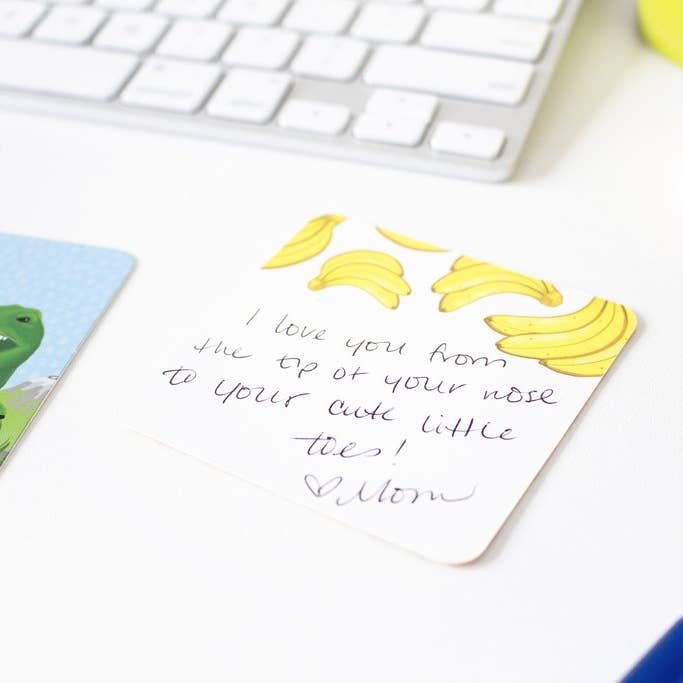 I love you from
the tip of your nose
to your cute little
toes!
♡ Mom